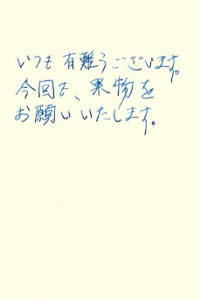 いつも有難うございます。
今回も、果物を
お願いいたします。